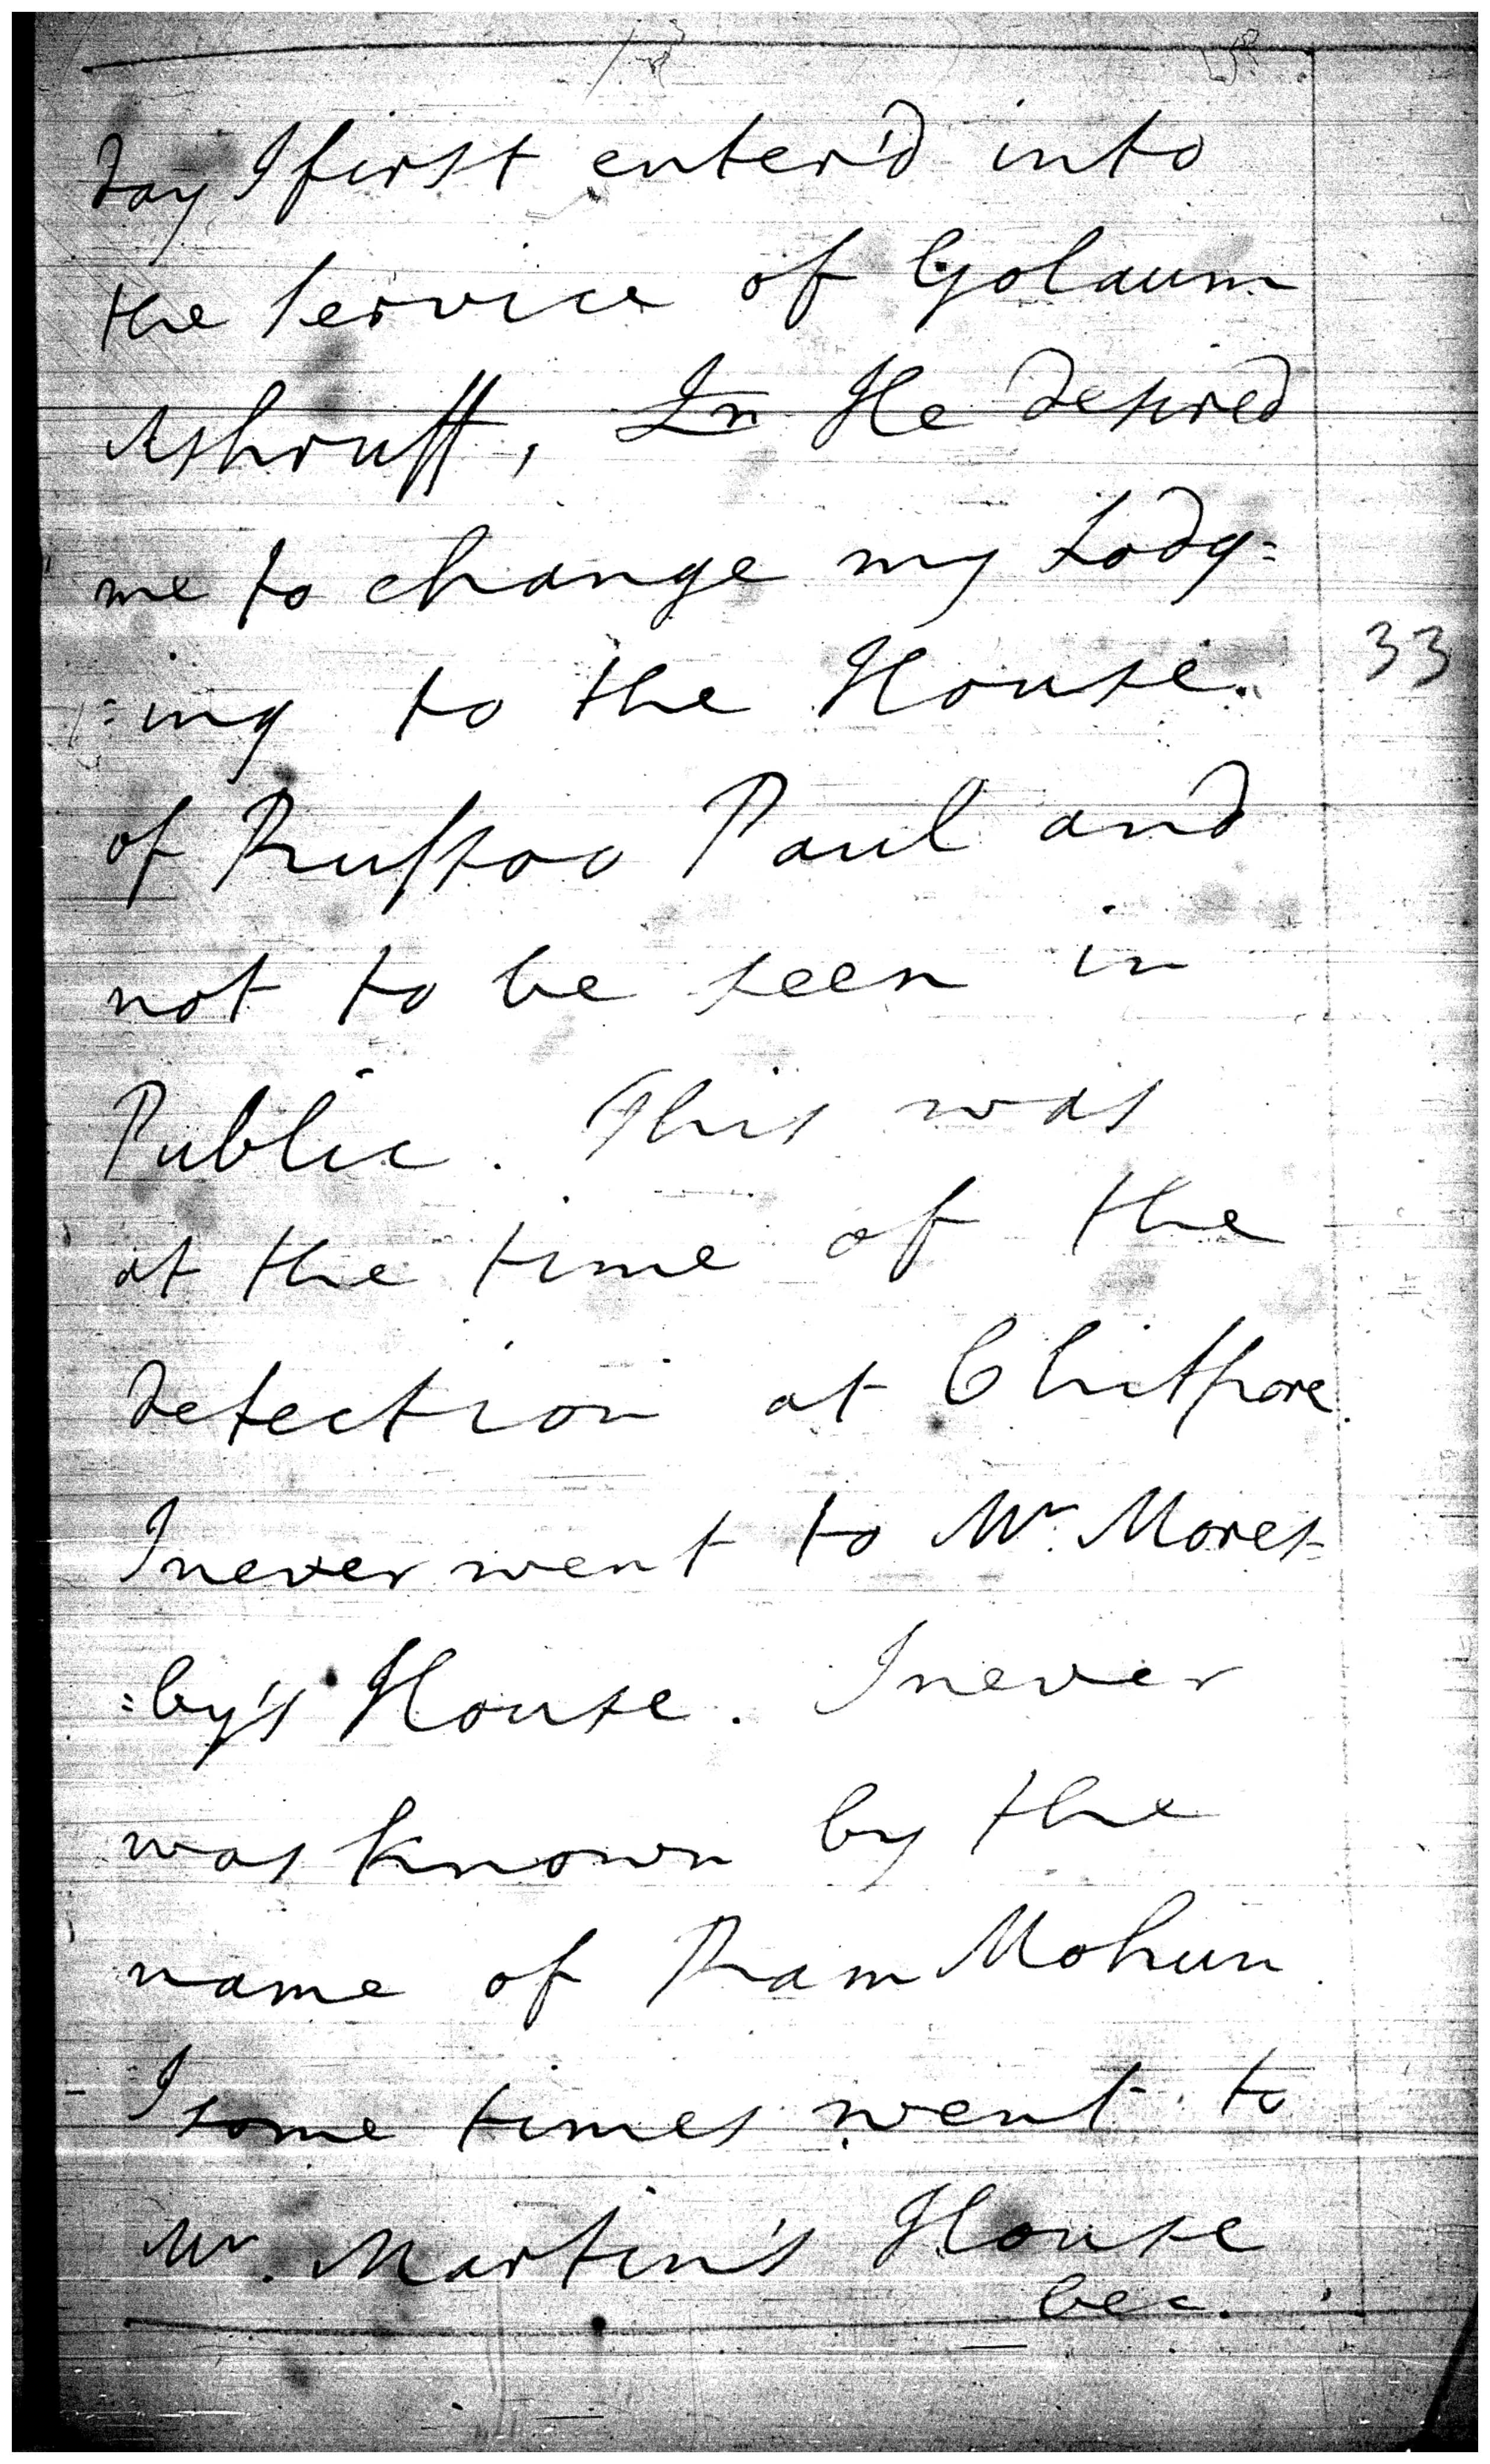 day I first enter'd into
the Service of Golaum
Ashruff, In He desired
me to change my Lodg=
=ing to the House
33
of Russoo Paul and
not to be seen in
Public. This was
at the time of the
detection at Chitpore.
I never went to Mr. Mores=
=by's House. I never
was known by the
name of Ram Mohun.
I some times went to
Mr. Martin's House
bec.